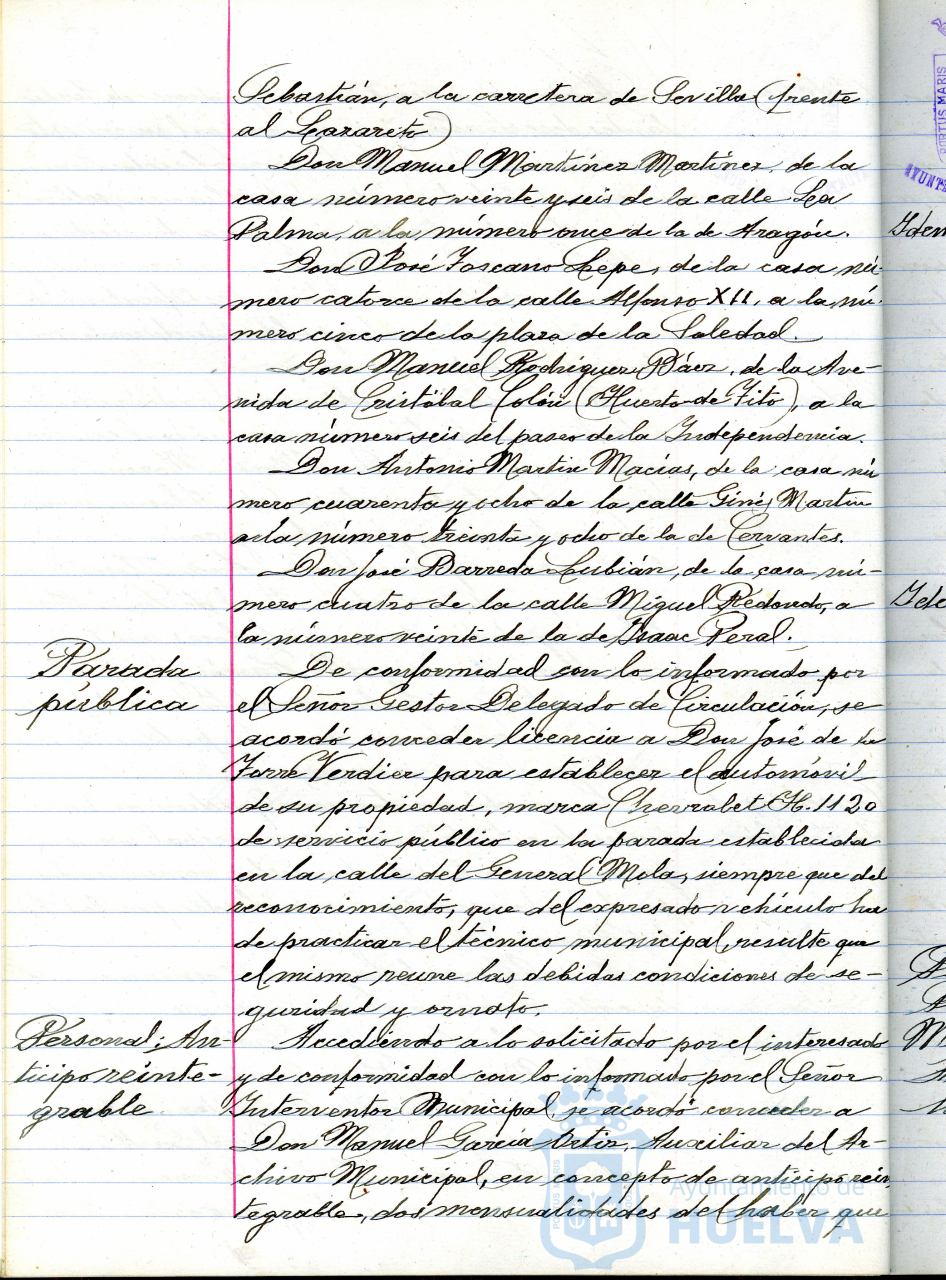 Sebastián, a la carretera de Sevilla (frente
al Lazareto)
Don Manuel Martínez Martínez, de la
casa número veinte y seis de la calle La
Palma, a la número once de la de Aragón.
Don José Toscano Lepe, de la casa nú-
mero catorce de la calle Alfonso XII, a la nú-
mero cinco de la plaza de la Soledad.
Don Manuel Rodríguez Báez, de la Ave-
nida de Cristóbal Colón (Huerto de Tito), a la
casa número seis del paseo de la Independencia.
Don Antonio Martin Macías, de la casa nú
mero cuarenta y ocho de la calle Ginés Martin
a la número treinta y ocho de la de Cervantes.
Don José Barreda Lubián, de la casa nú-
mero cuatro de la calle Miguel Redondo, a
la número veinte de la de Isaac Peral.
Parada
pública
De conformidad con lo informado por
el Señor Gestor Delegado de Circulación, se
acordó conceder licencia a Don José de la
Torre Verdier para establecer el automóvil
de su propiedad, marca Chevrolet H. 1120
de servicio público en la parada establecida
en la calle del General Mola, siempre que del
reconocimiento, que del expresado vehículo ha
de practicar el técnico municipal, resulte que
el mismo reune las debidas condiciones de se-
guridad y ornato.
Personal; An-
ticipo reinte-
grable
Accediendo a lo solicitado por el interesado
y de conformidad con lo informado por el Señor
Interventor Municipal, se acordó conceder a
Don Manuel García Ortiz, Auxiliar del Ar-
chivo Municipal, en concepto de anticipo rein
tegrable, dos mensualidades del haber que
Ayuntamiento de
HUELVA
PORTUS MARIS
Idem